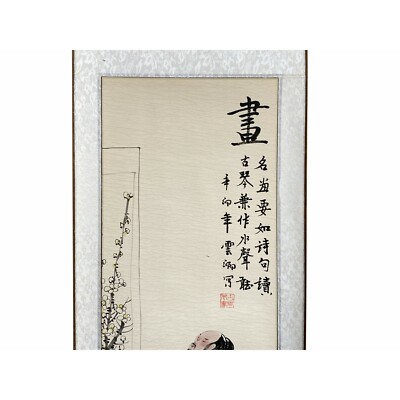 畫
名畫要如詩句讀
古琴兼作水聲聽
辛卯年 雲炳寫